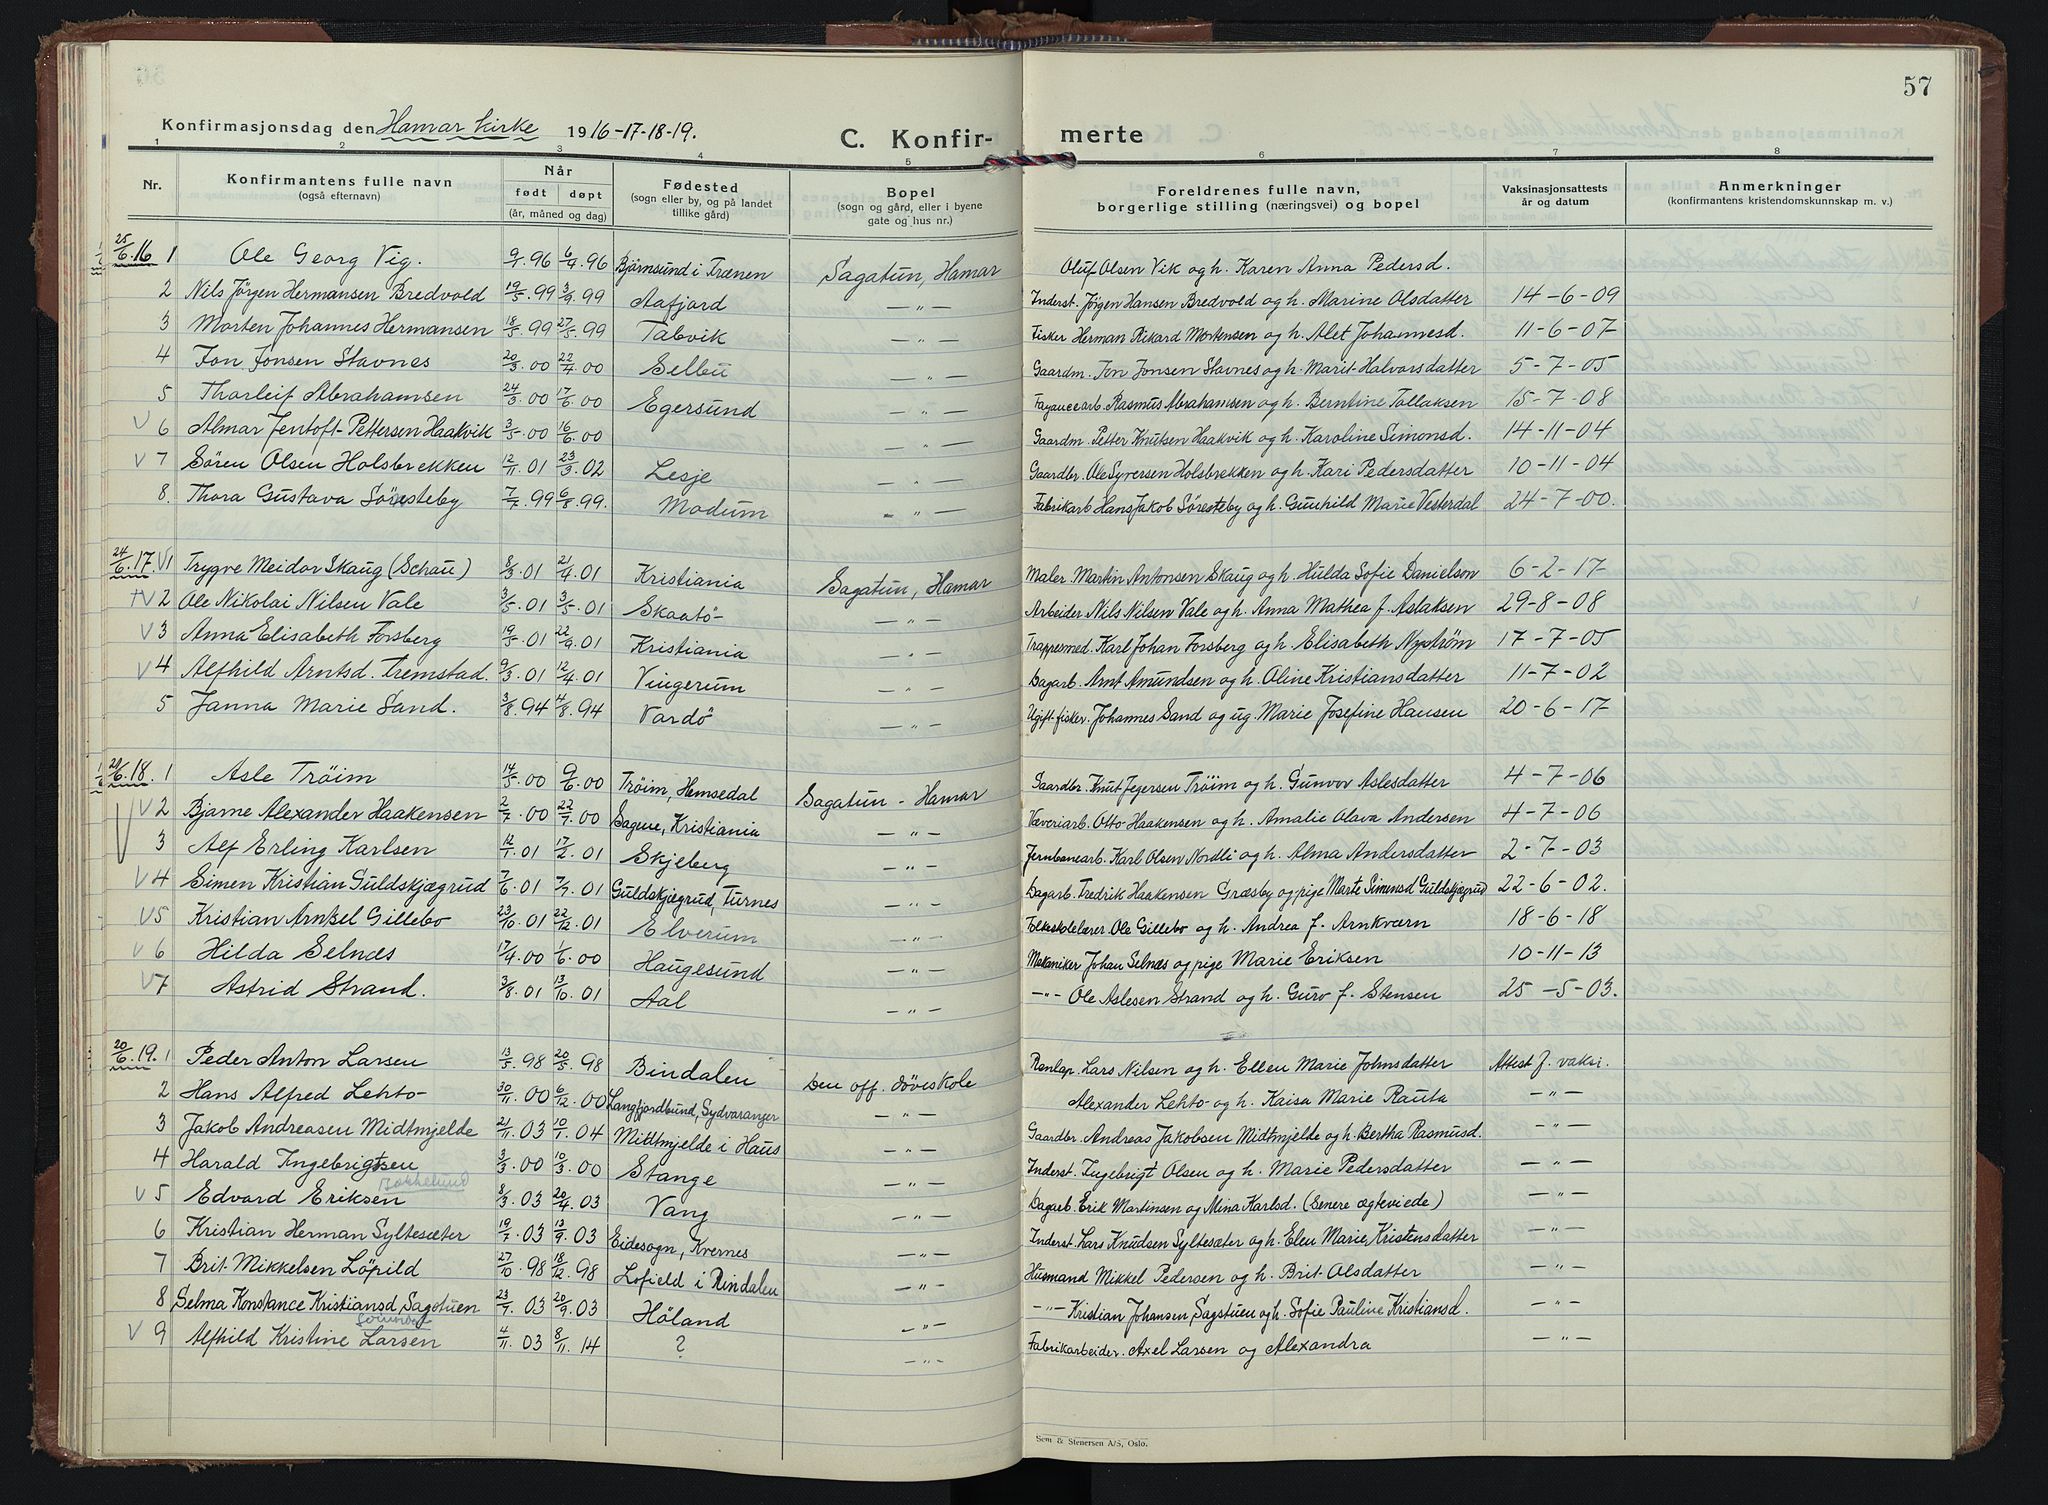 57
Konfirmasjonsdag den Hamar kirke 1916-17-18-19.
C. Konfir- merte
1 2 3 4 5 6 7 8
Nr. Konfirmantens fulle navn (også efternavn) Når født døpt (år, måned og dag) Fødested (sogn eller by, og på landet tillike gård) Bopel (sogn og gård, eller i byene gate og hus nr.) Foreldrenes fulle navn, borgerlige stilling (næringsvei) og bopel Vaksinasjonsattests år og datum Anmerkninger (konfirmantens kristendomskunnskap m. v.)
25/6.16 1 Ole Georg Vig. 9/1.96 6/4.96 Bjørnsund i Trænen Sagatun, Hamar Oluf Olsen Vik og h. Karen Anna Pedersd.
2 Nils Jørgen Hermansen Bredvold 19/5.99 3/9.99 Aafjord — " — Inderst. Jørgen Hansen Bredvold og h. Marine Olsdatter 14-6-09
3 Morten Johannes Hermansen 18/5.99 27/5.99 Talvik — " — Fisker Herman Rikard Mortensen og h. Alet Johannesd. 11-6-07
4 Jon Jonsen Stavnes 20/3.00 22/4.00 Selbu — " — Gaardm. Jon Jonsen Stavnes og h. Marit Halvorsdatter 5-7-05
5 Thorleif Abrahamsen 24/3.00 17/6.00 Egersund — " — Fayancearb. Rasmus Abrahamsen og h. Berntine Tollaksen 15-7-08
V 6 Almar Jentoft Pettersen Haakvik 3/5.00 16/6.00 — " — Gaardm. Petter Knutsen Haakvik og h. Karoline Simonsd. 14-11-04
V 7 Søren Olsen Holsbrekken 12/11.01 23/3.02 Lesje — " — Gaardbr. Ole Syversen Holsbrekken og h. Kari Pedersdatter 10-11-04
8. Thora Gustava Søresteby 7/7.99 6/8.99. Modum — " — Fabrikarb Hans Jakob Søresteby og h. Gunhild Marie Vesterdal 24-7-00.
24/6.17. V1 Trygve Meidor Skaug (Schau) 8/3.01 21/4.01 Kristiania Sagatun, Hamar Maler. Martin Antonsen Skaug og h. Hulda Sofie Danielson 6-2-17
V 2 Ole Nikolai Nilsen Vale 3/5.01 3/5.01 Skaatö — " — Arbeider Nils Nilsen Vale og h. Anna Mathea f. Aslaksen 29-8-08
V 3 Anna Elisabeth Forsberg 19/5.01 22/9.01 Kristiania — " — Trappesmed. Karl Johan Forsberg og h. Elisabeth Nystrøm 17-7-05
V 4 Alfhild Arntsd. Tremstad. 9/3.01 12/4.01 Vingerum — " — Dagarb. Arnt Amundsen og h. Oline Kristiansdatter 11-7-02
5 Janna Marie Sand. 3/8.94 4/8.94 Vardö — " — Ugift fisker. Johannes Sand og ug. Marie Josefine Hansen 20-6-17
6.18. 1 Asle Tröim 14/5.00 9/6.00 Tröim, Hemsedal Sagatun - Hamar Gaardbr. Knut Jegersen Tröim og h. Gunvor Aslesdatter 4-7-06
V 2 Bjarne Alexander Haakensen 2/7.00 22/7.00 Sagene, Kristiania — " — Væveriarb. Otto Haakensen og h. Amalie Olava Andersen 4-7-06
3 Alf Erling Karlsen 12/1.01 17/2.01 Skjeberg — " — Jernbanearb. Karl Olsen Nordli og h. Alma Andersdatter 2-7-03
V 4 Simen Kristian Guldskjægrud 7/6.01 7/7.01 Guldskjægrud, Furnes — " — Dagarb. Fredrik Haakensen Græsby og pige Marte Simensd Guldskjægrud 22-6-02.
V 5 Kristian Arnkel Gillebo 23/10.01 22/12.01 Elverum — " — Folkeskolelærer. Ole Gillebo og h. Andrea f. Arnkværn 18-6-18
V 6 Hilda Selnæs 17/4.00 1/6.00 Haugesund — " — Mekaniker Johan Selnæs og pige Marie Eriksen 10-11-13
V 7 Astrid Strand. 3/8.01 13/10.01 Aal — " — — " — Ole Aslesen Strand og h. Guro f. Stensen 25-5-03.
20/6.19. 1 Peder Anton Larsen 13/5.98 20/5.98 Bindalen Den off. døveskole Renlap. Lars Nilsen og h. Ellen Marie Johnsdatter Attest f. vaksi.
2 Hans Alfred Lehto 30/11.00 6/12.00 Langfjordbund, Sydvaranger — " — Alexander Lehto og h. Kaisa Marie Rauta — " —
3 Jakob Andreasen Midtmjelde 21/11.03 10/1.04 Midtmjelde i Haus — " — Gaardbr. Andreas Jakobsen Midtmjelde og h. Bertha Rasmusd. — " —
4 Harald Ingebrigtsen 3/3.00 10/3.00 Stange — " — Inderst. Ingebrigt Olsen og h. Marie Pedersdatter — " —
Bakkelund
V 5 Edvard Eriksen 8/3.03 20/4.03 Vang — " — Dagarb. Erik Martinsen og Mina Karlsd. (Senere ægteviede) — " —
6 Kristian Herman Syltesæter 19/7.03 13/9.03 Eidesogn, Kvernes — " — Inderst. Lars Knudsen Syltesæter og h. Elen Marie Kristensdatter — " —
7 Brit Mikkelsen Löpild 27/10.98 18/12.98 Lofield i Rindalen — " — Husmand Mikkel Pedersen og h. Brit Olsdatter — " —
8 Selma Konstance Kristiansd. Sagstuen 23/7.03 20/9.03 Höland — " — — " — Kristian Johansen Sagstuen og h. Sofie Pauline Kristiansd. — " —
V 9 Alfhild Kristine Larsen 4/11.03 8/11.14 ? — " — Fabrikarbeider. Axel Larsen og Alexandra — " —
Sem & Stenersen A/S, Oslo.